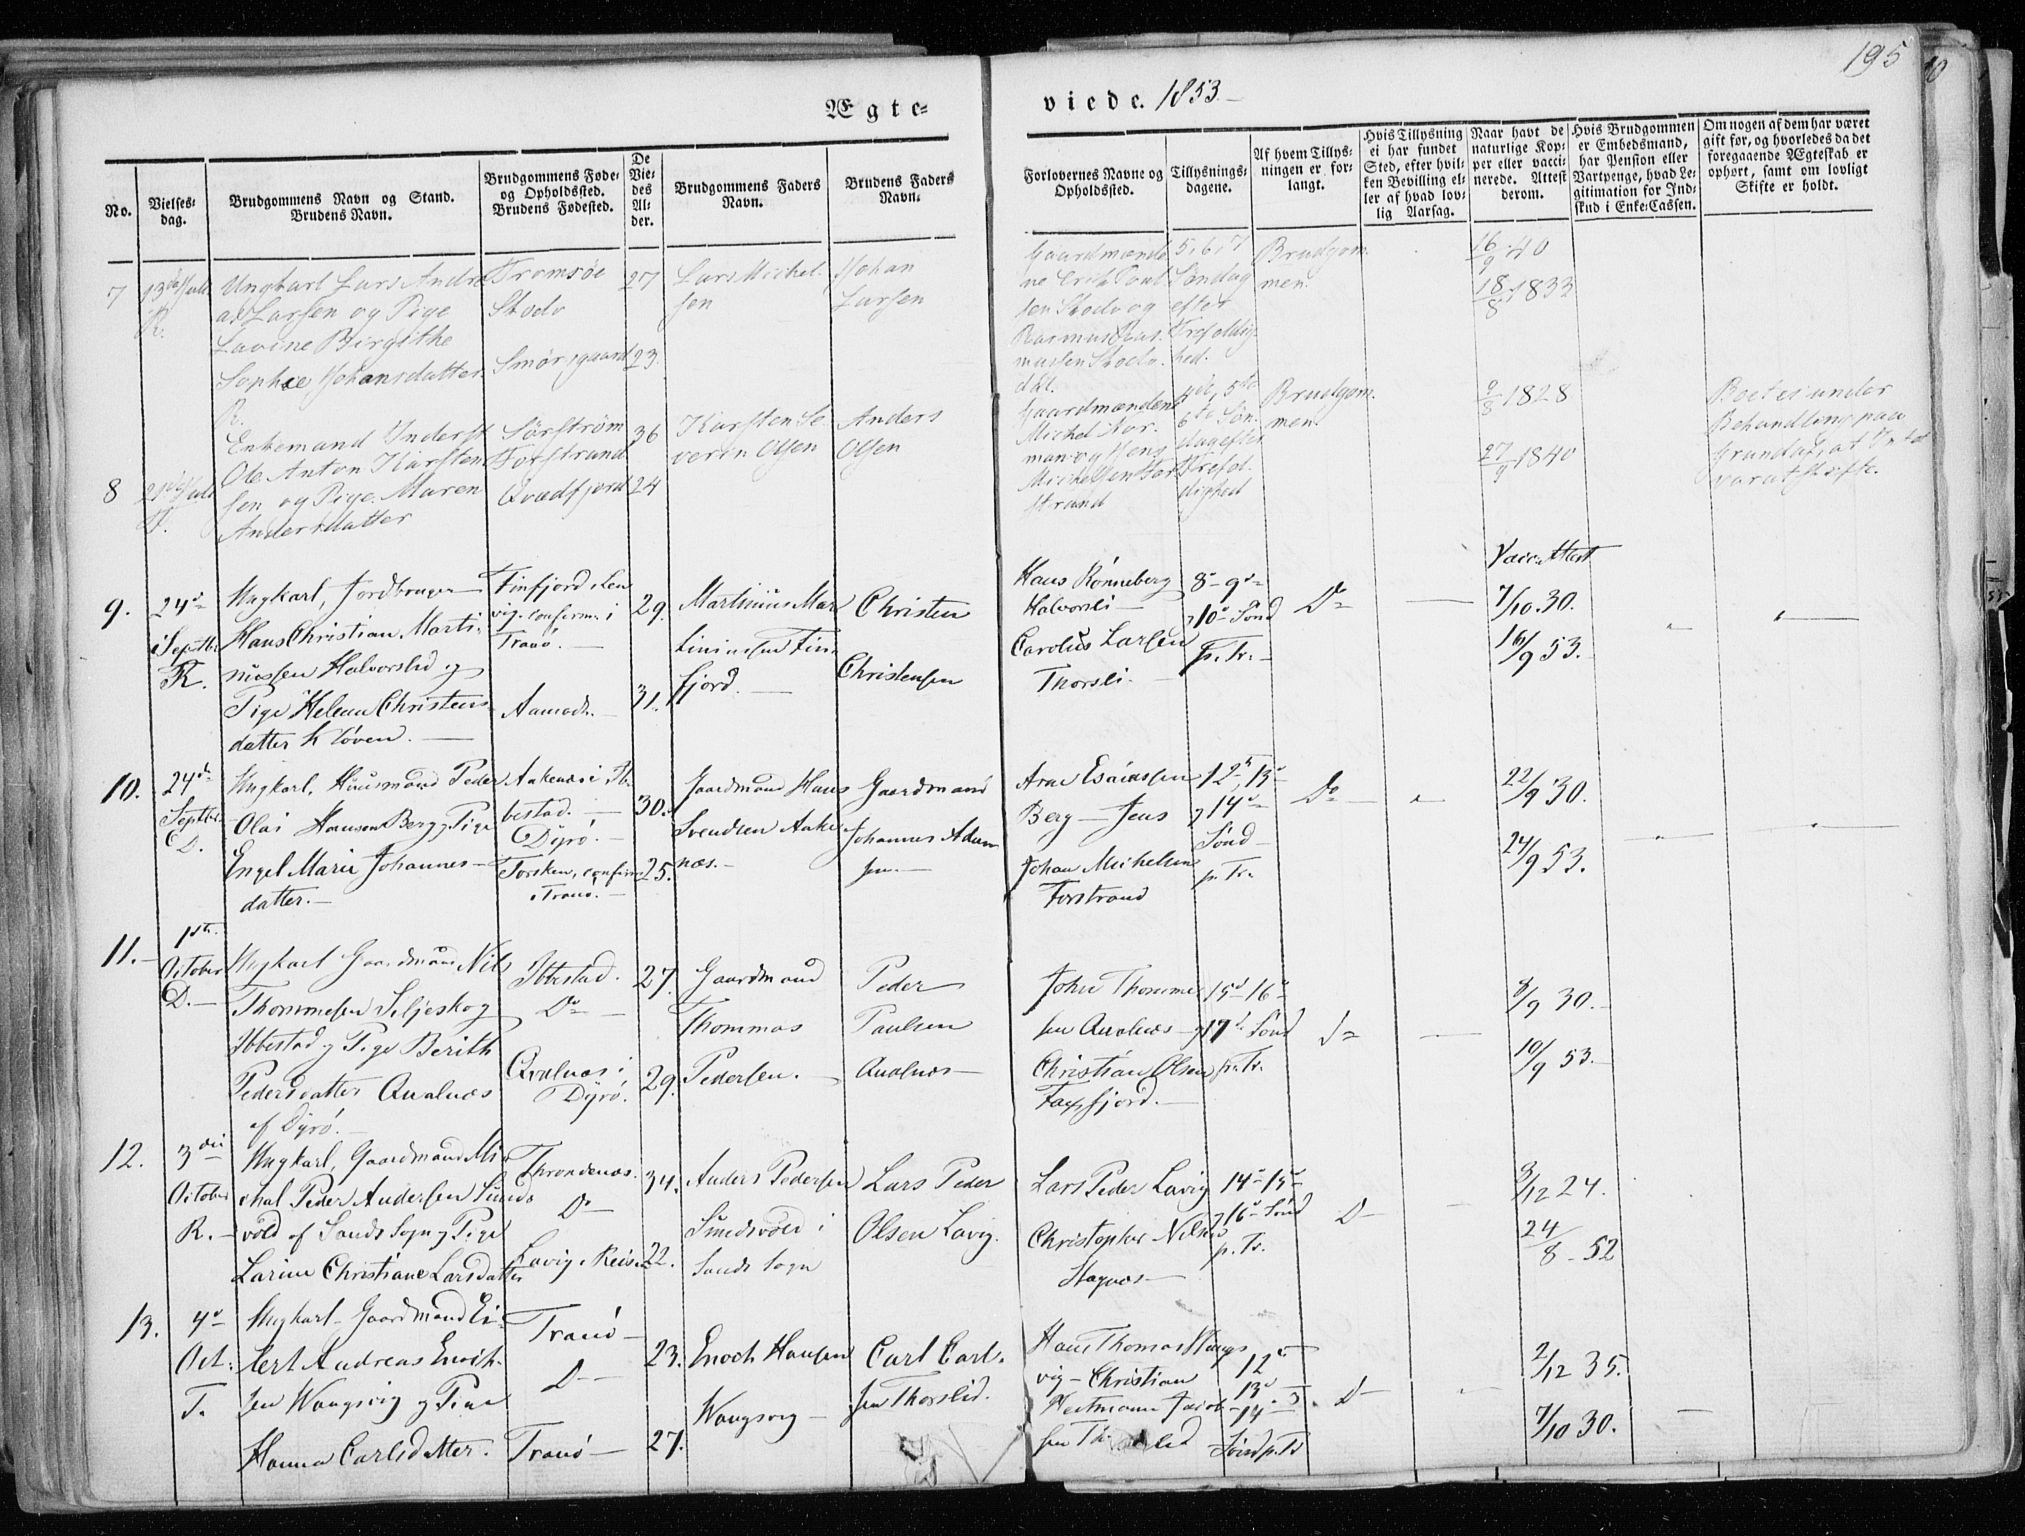 195
Ægte=
viede. 1853.
No.
Vielses=
dag.
Brudgommens Navn og Stand.
Brudens Navn.
Brudgommens Føde=
og Opholdssted.
Brudens Fødested.
De
Vie=
des
Al=
der.
Brudgommens Faders
Navn.
Brudens Faders
Navn.
Forlovernes Navne og
Opholdssted.
Tillysnings=
dagene.
Af hvem Tillys=
ningen er for=
langt.
Hvis Tillysning
ei har fundet
Sted, efter hvil=
ken Bevilling el=
ler af hvad lov=
lig Aarsag.
Naar havt de
naturlige Kop=
per eller vacci=
nerede. Attest
derom.
Hvis Brudgommen
er Embedsmand,
har Pension eller
Vartpenge, hvad Le=
gitimation for Ind=
skud i Enke=Cassen.
Om nogen af dem har været
gift før, og hvorledes da det
foregaaende Ægteskab er
ophørt, samt om lovligt
Skifte er holdt.
7
13de Juli
R.
Ungkarl Lars Andre
as Larsen og Pige
Lavine Birgithe
Sophie Johansdatter
Tromsøe
Stodv
Smörsgaard
27
23
Lars Michel-
sen
Johan
Larsen
Gaardmænde
ne Erik Poul
sen Stodv og
Rasmus Ras-
mussen Stodv.
5, 6, 7
Søndag
efter
Trefoldig-
hed.
Brudgom-
men.
16/9 40
18/8 1833
8
21de Juli
T.
Enkemand Inderst
Ole Anton Karsten
sen og Pige Maren
Andersdatter
Sörström
Forstrand
Qvædfjord
36
24
Karsten Se
verin Olsen
Anders
Olsen
Gaardmændene
Michel Nor-
man og Jens
Michelsen For
strand
4de, 5te
6te Søn-
dag efter
Trefol-
dighed
Brudgom-
men
9/8 1828
27/9 1840
Boet er under
Behandling paa
Grund af, at Intet
var at skifte.
9.
24de
Septbr.
R.
Ungkarl, Jordbruger
Hans Christian Marti-
nussen Halvorslid og
Pige Helena Christens
datter Kløven.
Finfjord i Len
vig. conferm. i
Tranö.
Aamodt.
29.
31.
Martinus Mar
tinussen Fin-
fjord.
Christen
Christensen
Hans Rønneberg
Halvorsli
Carolus Larsen
Thorsli.
8de 9de
10de Sönd
p. Tr.
Do
Vacc. Attest
7/10 30.
16/9 53.
10.
24de
Septbr.
D.
Ungkarl, Huusmand Peder
Olai Hansen Berg og Pige
Engel Marie Johannes
datter.
Aakenæs i Ib-
bestad.
Dyrö.
Torsken, confirm.
i Tranö.
30.
25.
Gaardmand Hans
Svendsen Aake
næs.
Gaardmand
Johannes Adam
sen.
Arne Esaiassen
Berg — Jens
Johan Michelsen
Forstrand
12te, 13de
14de
Sönd
p. Tr.
Do
22/9 30.
24/9 53.
11.
1ste
October
D.
Ungkarl Gaardmand Nils
Thommesen Seljeskog
Ibbestad og Pige Berith
Pedersdatter Qvalnæs
af Dyrö.
Ibbestad.
Do
Qvalnæs i
Dyrö.
27.
29.
Gaardmand
Thommas
Pedersen.
Peder
Paulsen
Qvalnæs
John Thomme
sen Qvalnæs
Christian Olsen
Faxfjord.
15de 16de
17de Sönd
p. Tr.
Do
8/9 30.
10/9 53.
12.
3die
October
R.
Ungkarl, Gaardmand Mi-
chal Peder Andersen Sunds
vold af Sands Sogn og Pige
Larine Christiane Larsdatter
Throndenæs.
Do
Lavig i Reisen
34.
22.
Anders Pedersen
Sundsvold i
Sands Sogn
Lars Peder
Olsen Lavig.
Lars Peder Lavig
Christopher Nilsen
Stagnæs
14de 15de
16de Sönd
p. Tr.
Do
3/12 24.
24/8 52
13.
4de
Oct.
T.
Ungkarl Gaardmand Ei-
lert Andreas Enoch-
sen Wangsvig og Pige
Hanna Carlsdatter.
Tranö
Do
Tranö
23.
27.
Enoch Hansen
Wangsvig
Carl Carl-
sen Thorslid.
Hans Thomas Wangs
vig — Christian
Hartmann Jacob-
sen
12te
13de
14de
Sönd p. Tr.
Do
2/12 35.
7/10 30.